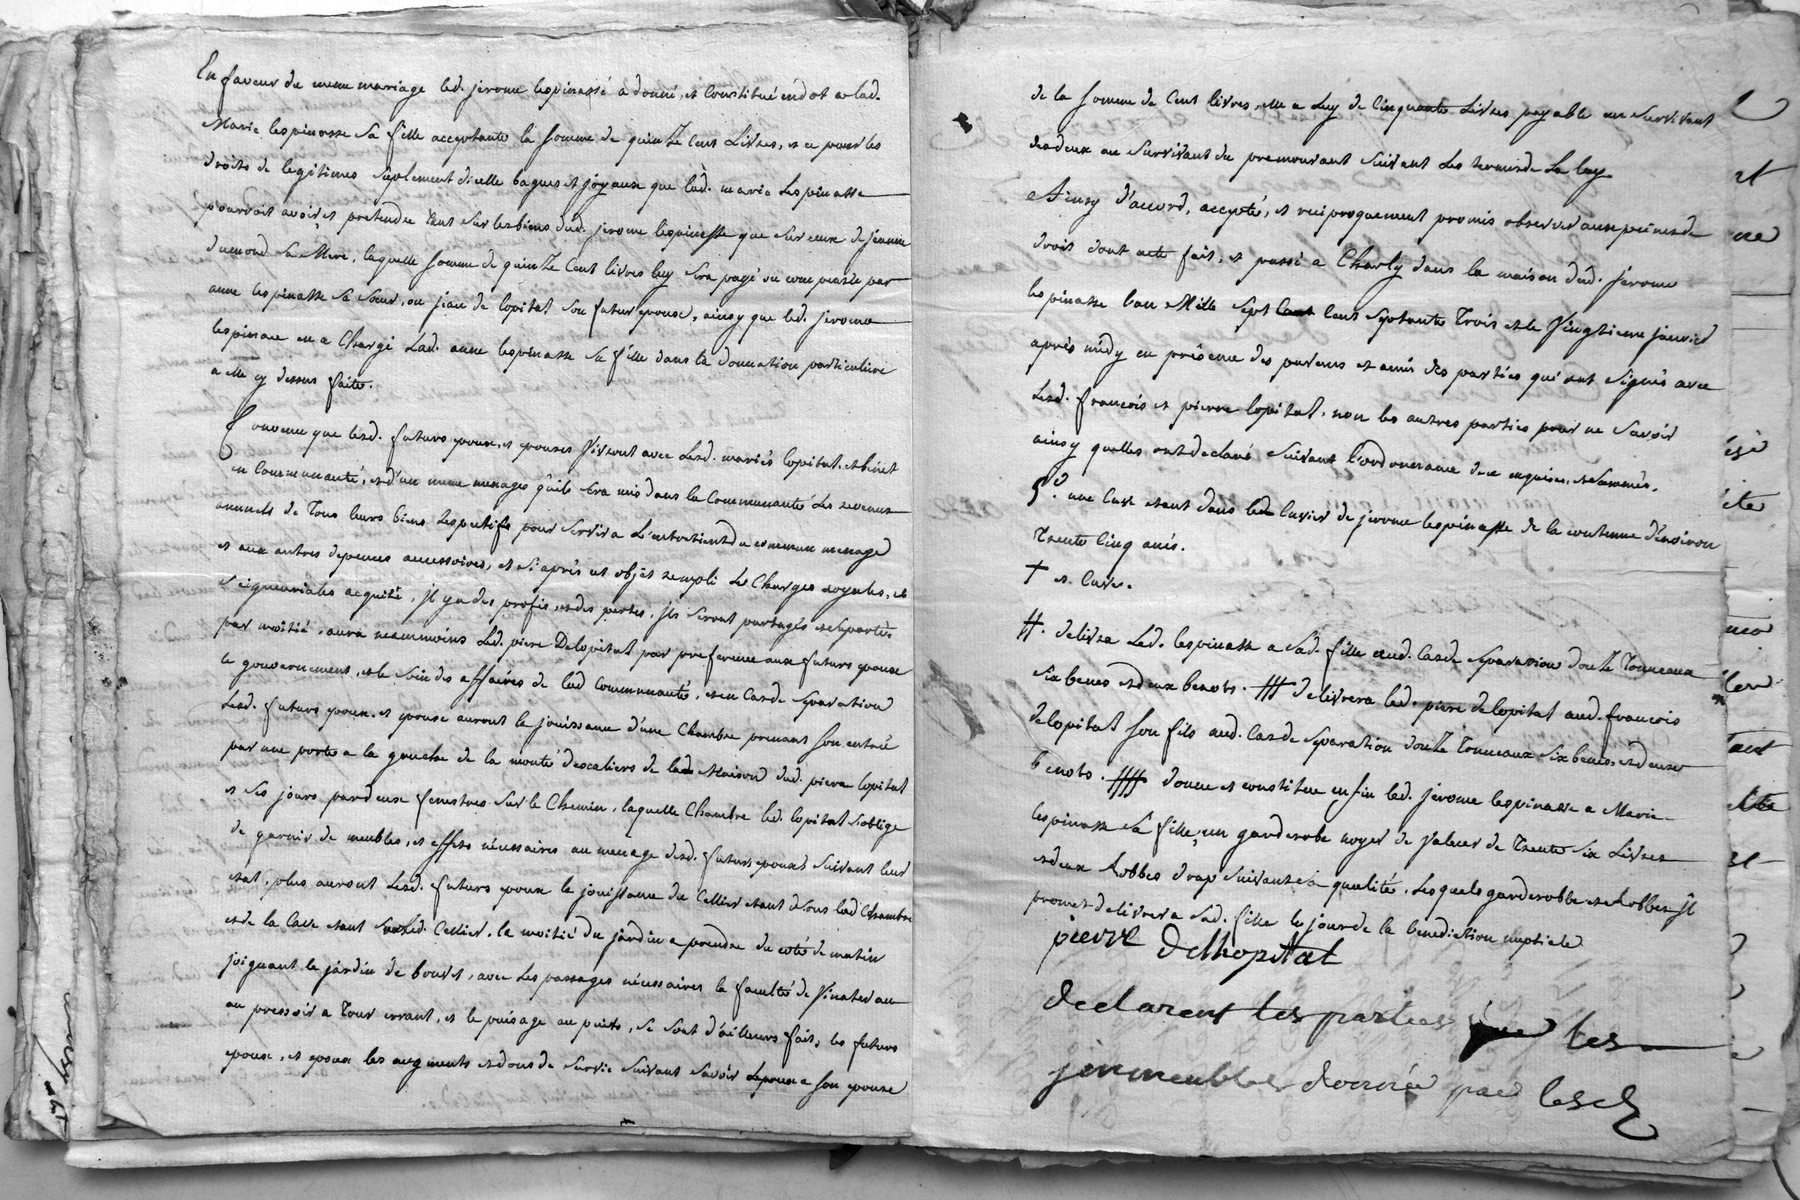 En faveur du meme mariage led. jerome lespinasse a donné, et Constitué en dot a lad.
Marie lespinasse sa fille acceptante la somme de quinze Cent Livres, et ce pour les
droits de legitimes suplement dicelle bagues et joyaux que lad. marie Lespinasse
pourroit avoir et pretendre tant sur les biens dud. jerome lespinasse que sur ceux de jeanne
dumond sa Mere, laquelle somme de quinze Cent livres luy sera payé ou compensée par
anne lespinasse sa soeur, ou jean de lopital son futur epoux, ainsy que led. jerome
lespinasse en a Chargé Lad. anne lespinasse sa fille dans la donnation particuliere
a elle cy dessus faite.
Convenu que lesd. futurs epoux, et epouses vivront avec Lesd. mariés lopital, et
en Communauté, et d'un meme menage qu'ils sera mis dans la Communauté Les revenus
annuels de Tous leurs biens respectifs pour servir a L'entretient du commun menage
et aux autres depences accessoires, et si après cet objet rempli Les Charges royales, et
seigneuriales acquité, jl y a des profis, et des pertes, jls seront partagés et suportés
par moitié, aura neammoins Led. piere Delopital par preference aux futurs epoux
le gouvernement, et le soin des affaires de lad Communauté, et en Cas de separation
Lesd. futurs epoux et epouse auront la jouissance d'une Chambre prenant son entrée
par une porte a la gauche de la monté d'escaliers de lad Maison dud. piere lopital
et ses jours par deux fenestres sur le Chemin, laquelle Chambre led. lopital s'oblige
de garnir de meubles, et effets nécessaires au menage desd. futurs epoux suivant leur
etat, plus auront Lesd. futurs epoux la jouissance du Cellier etant desous lad Chambre
et de la Cave etant sous led. Cellier, la moitié du jardin a prendre du coté de matin
joignant le jardin de , avec Les passages nécessaires la faculté de
au pressoir a Tour errant, et le puisage au puits, se sont d'ailleurs faits, les futurs
epoux, et epoux les augments et dons de survie suivant savoir Lepoux a son epouse
de la somme de Cent livres, elle a Luy de Cinquante Livres payable au survivant
des deux au survivant du premourant suivant Les termes de La loy
Ainsy d'accord, accepté, et reciproquement promis observer aux peines de
droit dont acte fait, et passé a Charly dans la maison dud. jerome
lespinasse l'an Mille sept Cent septante Trois et le vingtieme janvier
après midy en présence des parens et amis des parties qui ont signés avec
Lesd. françois et pierre lopital, non les autres parties pour ne savoir
ainsy quelles ont declaré suivant l'ordonnance de ce enquises, et Sommés.
une Cuve etant dans led Cuvier de jerome lespinasse de la contenue d'environ
Trente Cinq anés.
† et Cuves.
#. delivra Led. lespinasse a sad. fille aud. Cas de separation douze Tonneaux
six benes et deux benots. delivrera led. piere delopital aud. françois
delopital son fils aud. Cas de separation douze Tonneaux six benes, et deux
benots. donne et constitue enfin led. jerome lespinasse a Marie
lespinasse sa fille, un garderobe noyer de valeur de Trente six Livres
et deux Robbes drap suivant sa qualité, Lesquels garderobbe et Robbes jl
promet delivrer a sad. fille le jour de la benediction nuptiale
pierre Delhopital
declarent les parties que les
jmmeubles donnée par lesd